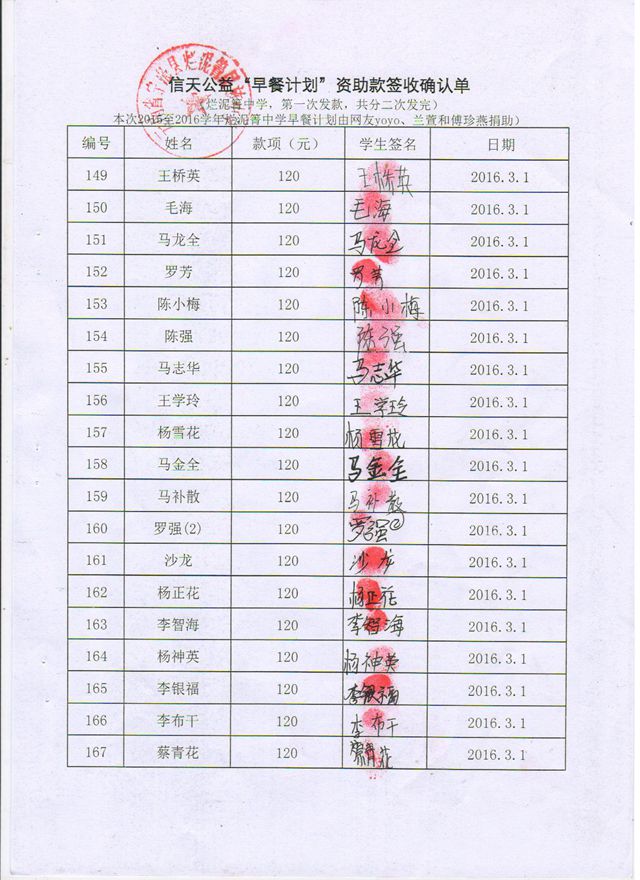 信天公益“早餐计划”资助款签收确认单
（烂泥箐中学，第一次发款，共分二次发完）
本次2015至2016学年烂泥箐中学早餐计划由网友yoyo、兰萱和傅珍燕捐助）
编号 姓名 款项（元） 学生签名 日期
149 王桥英 120 王桥英 2016.3.1
150 毛海 120 毛海 2016.3.1
151 马龙全 120 马龙全 2016.3.1
152 罗芳 120 罗芳 2016.3.1
153 陈小梅 120 陈小梅 2016.3.1
154 陈强 120 陈强 2016.3.1
155 马志华 120 马志华 2016.3.1
156 王学玲 120 王学玲 2016.3.1
157 杨雪花 120 杨雪花 2016.3.1
158 马金全 120 马金全 2016.3.1
159 马补散 120 马补散 2016.3.1
160 罗强(2) 120 罗强② 2016.3.1
161 沙龙 120 沙龙 2016.3.1
162 杨正花 120 杨正花 2016.3.1
163 李智海 120 李智海 2016.3.1
164 杨神英 120 杨神英 2016.3.1
165 李银福 120 李银福 2016.3.1
166 李布干 120 李布干 2016.3.1
167 蔡青花 120 蔡青花 2016.3.1